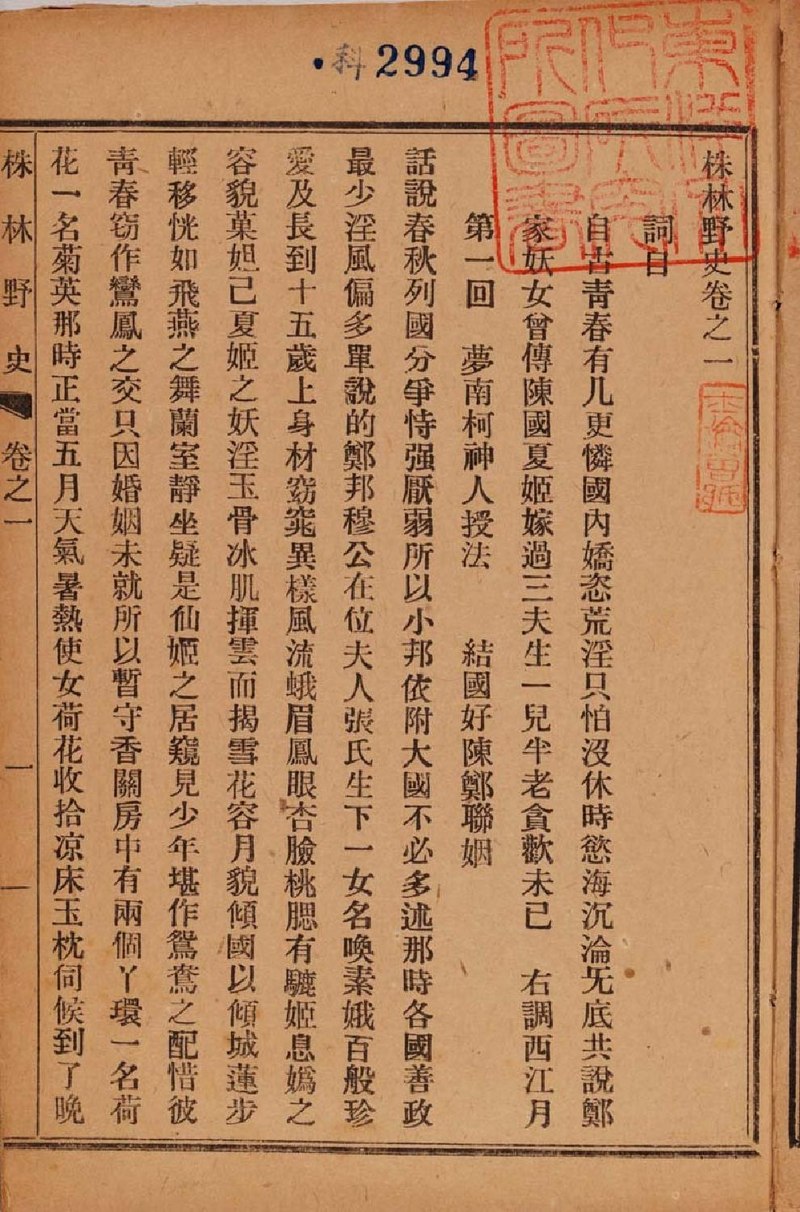 科 2994
株林野史卷之一
詞曰
自古青春有几更憐國內嬌恣荒淫只怕沒休時慾海沉淪无底共說鄭
家妖女曾傳陳國夏姬嫁過三夫生一兒半老貪歡未已 右調西江月
第一回 夢南柯神人授法 結國好陳鄭聯姻
話說春秋列國分爭恃强厭弱所以小邦依附大國不必多述那時各國善政
最少淫風偏多單說的鄭邦穆公在位夫人張氏生下一女名喚素娥百般珍
愛及長到十五歲上身材窈窕異樣風流蛾眉鳳眼杏臉桃腮有驪姬息媯之
容貌菓妲己夏姬之妖淫玉骨冰肌揮雲而揭雪花容月貌傾國以傾城蓮步
輕移恍如飛燕之舞蘭室靜坐疑是仙姬之居窺見少年堪作鴛鴦之配惜彼
青春窈作鸞鳳之交只因婚姻未就所以暫守香閨房中有兩個丫環一名荷
花一名菊英那時正當五月天氣暑熱使女荷花收拾凉床玉枕伺候到了晚
株林野史 卷之一 一